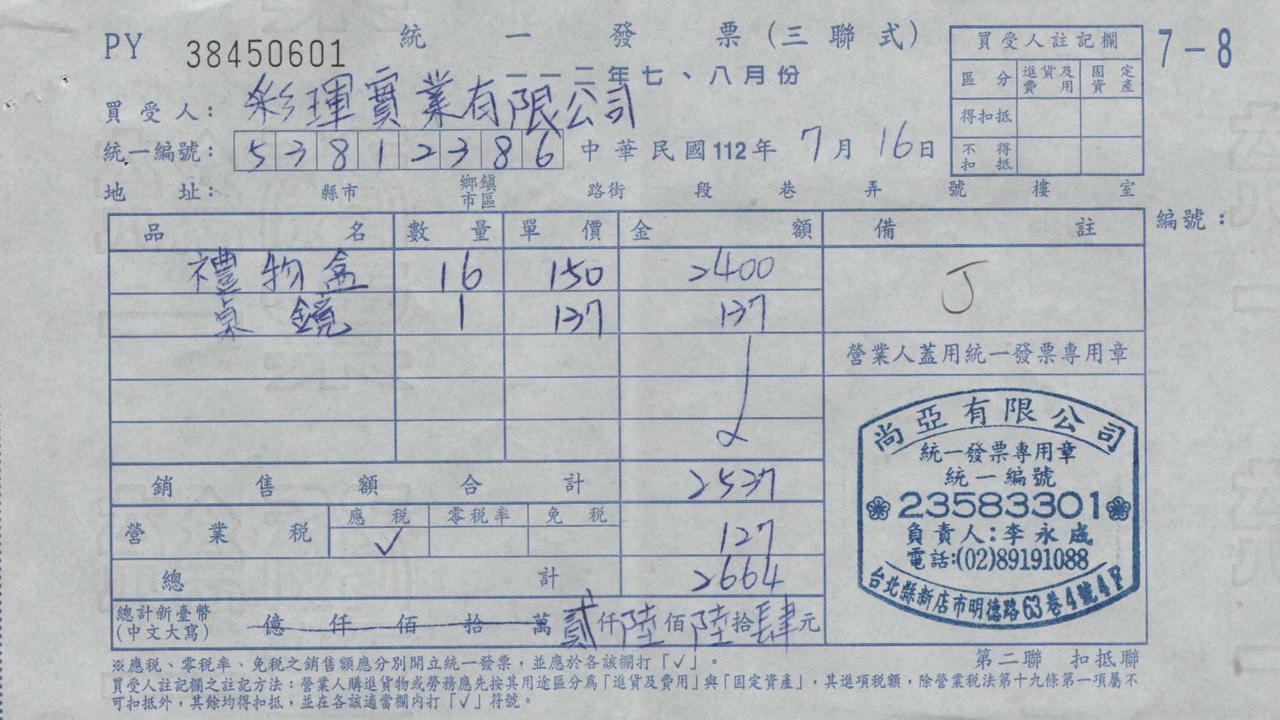 PY 38450601 統一發票(三聯式) 7-8
一一二年七、八月份
買受人註記欄
區分 進貨及費用 固定資產
得扣抵
不得扣抵
買受人: 彩琿實業有限公司
統一編號: 53812386 中華民國112年7月16日
地址: 縣市 鄉鎮市區 路街 段 巷 弄 號 樓 室
品名 數量 單價 金額 備註 編號:
禮物盒 16 150 2400 J
桌鏡 1 137 137
營業人蓋用統一發票專用章
銷售額合計 2537
營業稅 應稅 ✓ 零稅率 免稅 127
總計 2664
總計新臺幣(中文大寫) 億仟佰拾萬貳仟陸佰陸拾肆元
尚亞有限公司
統一發票專用章
統一編號
23583301
負責人:李永成
電話:(02)89191088
台北縣新店市明德路63巷4號4F
第二聯 扣抵聯
※應稅、零稅率、免稅之銷售額應分別開立統一發票,並應於各該欄打「✓」。
買受人註記欄之註記方法:營業人購進貨物或勞務應先按其用途區分為「進貨及費用」與「固定資產」,其進項稅額,除營業稅法第十九條第一項屬不
可扣抵外,其餘均得扣抵,並在各該適當欄內打「✓」符號。